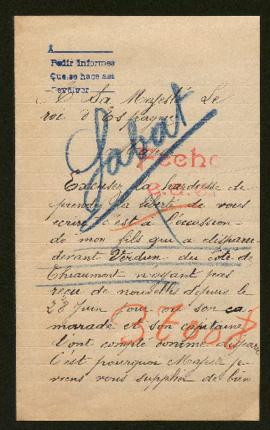 A
Pedir informes
Que se hace así
Devolver
A Sa Majesté Le
roi d'Espagne
Sabat
Fecho
Excusez la hardiesse de
prendre la liberté de vous
écrire c'est a l'occasion
de mon fils qui a disparu
devant Verdun du côté de
Chaumont n'ayant pas
reçu de nouvelles depuis le
28 juin jour ou son ca
marade et son capitaine
l'ont compté comme disparu
c'est pourquoi Majesté je
viens vous supplier de bien